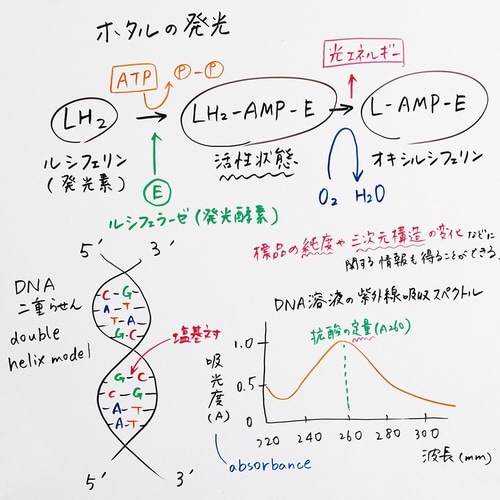 ホタルの発光
光エネルギー
ATP
P-P
LH2
LH2-AMP-E
L-AMP-E
ルシフェリン
(発光素)
活性状態
オキシルシフェリン
E
O2 H2O
ルシフェラーゼ(発光酵素)
標品の純度や三次元構造の変化などに
関する情報も得ることができる。
5′ 3′
DNA
二重らせん
double
helix model
C-G
A-T
T-A
G-C
塩基対
G-C
C-G
A-T
A-T
5′ 3′
DNA溶液の紫外線吸収スペクトル
核酸の定量(A260)
吸光度(A)
1.0
0.5
220 240 260 280 300
波長(mm)
absorbance